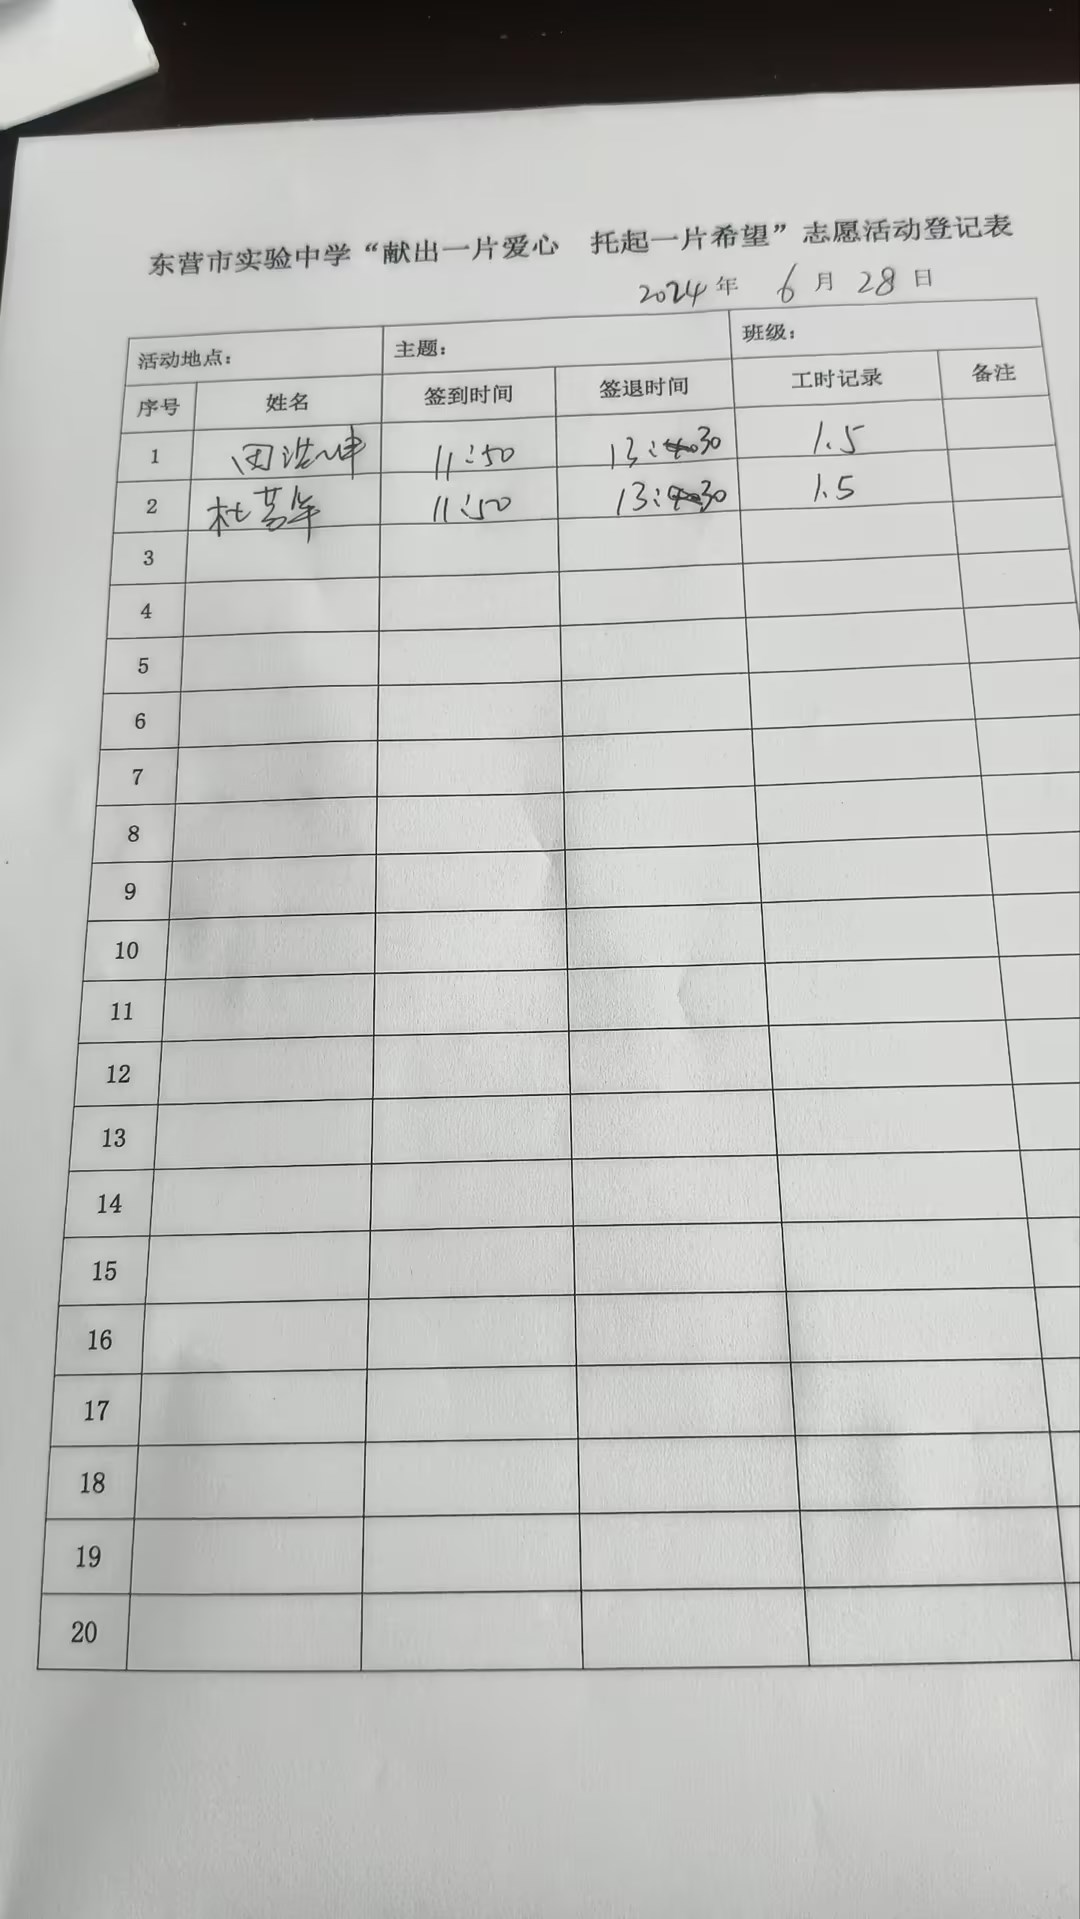 东营市实验中学“献出一片爱心 托起一片希望”志愿活动登记表
2024年 6月28日
活动地点: 主题: 班级:
序号 姓名 签到时间 签退时间 工时记录 备注
1 田浩坤 11:50 13:30 1.5
2 杜 11:50 13:30 1.5
3
4
5
6
7
8
9
10
11
12
13
14
15
16
17
18
19
20